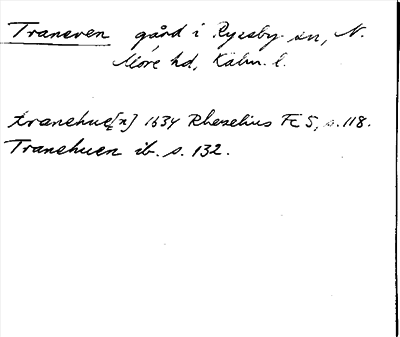 Traneven gård i Ryssby sn, N.
Möre hd, Kalm. l.
tranehue[n] 1634 Rhezelius Fc 5, s. 118.
Tranehuen ib. s. 132.